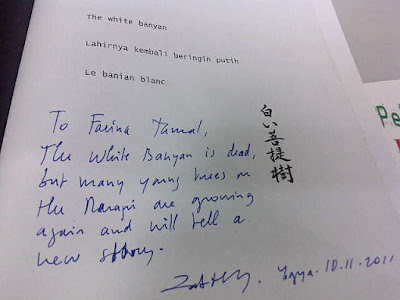 The white banyan
Lahirnya kembali beringin putih
Le banian blanc
白い菩提樹
To Farina Jamal,
The White Banyan is dead,
but many young trees on
the Merapi are growing
again and will tell a
new story.
10.11.2011
Pe